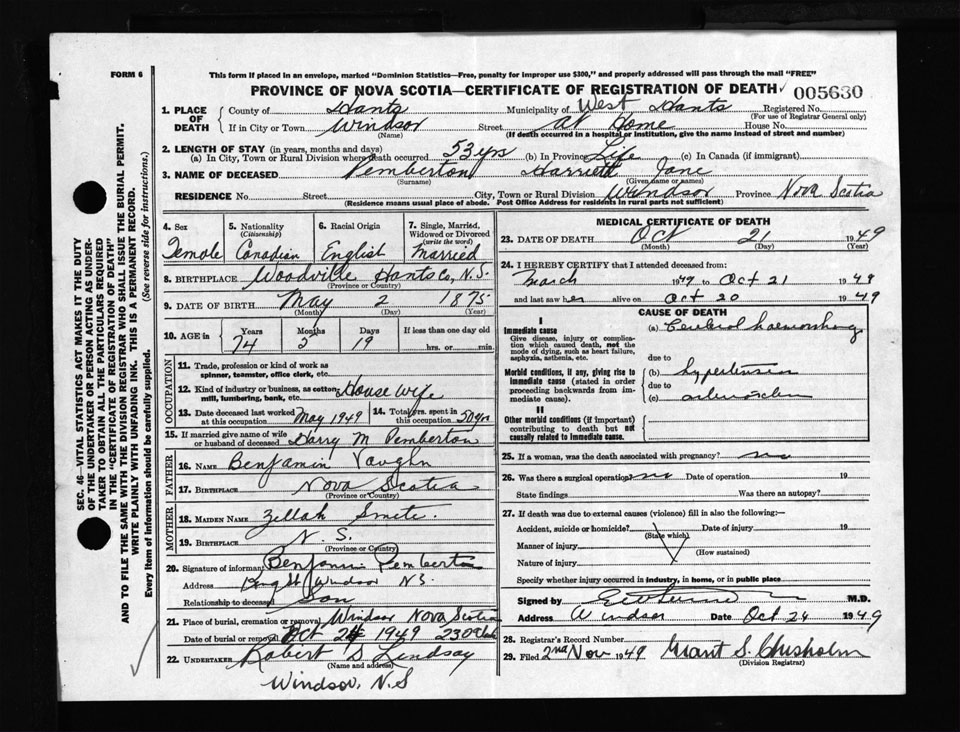 FORM 6
This form if placed in an envelope, marked "Dominion Statistics—Free, penalty for improper use $300," and properly addressed will pass through the mail "FREE"
PROVINCE OF NOVA SCOTIA—CERTIFICATE OF REGISTRATION OF DEATH ✓ 005630
1. PLACE OF DEATH County of Hants Municipality of West Hants Registered No.
(For use of Registrar General only)
If in City or Town Windsor Street At Home House No.
(Name) (If death occurred in a hospital or institution, give the name instead of street and number)
2. LENGTH OF STAY (in years, months and days)
(a) In City, Town or Rural Division where death occurred 53 yrs (b) In Province Life (c) In Canada (if immigrant)
3. NAME OF DECEASED Pemberton Harriett Jane
(Surname) (Given name or names)
RESIDENCE No. Street City, Town or Rural Division Windsor Province Nova Scotia
(Residence means usual place of abode. Post Office Address for residents in rural parts not sufficient)
4. Sex Female
5. Nationality (Citizenship) Canadian
6. Racial Origin English
7. Single, Married, Widowed or Divorced (write the word) Married
8. BIRTHPLACE Woodville Hants Co, N.S.
(Province or Country)
9. DATE OF BIRTH May 2 1875
(Month) (Day) (Year)
10. AGE in Years Months Days If less than one day old
74 5 19 hrs. or min.
OCCUPATION
11. Trade, profession or kind of work as spinner, teamster, office clerk, etc.
12. Kind of industry or business, as cotton mill, lumbering, bank, etc. House wife
13. Date deceased last worked at this occupation May 1949 14. Total yrs. spent in this occupation 50 yrs
15. If married give name of wife or husband of deceased Harry M Pemberton
FATHER
16. NAME Benjamin Vaughn
17. BIRTHPLACE Nova Scotia
(Province or Country)
MOTHER
18. MAIDEN NAME Zellah
19. BIRTHPLACE N. S.
(Province or Country)
20. Signature of informant Benjamin Pemberton
Address King St Windsor NS.
Relationship to deceased Son
21. Place of burial, cremation or removal Windsor Nova Scotia
Date of burial or removal Oct 24 1949 230
22. UNDERTAKER Robert S Lindsay
(Name and address)
Windsor, N.S
MEDICAL CERTIFICATE OF DEATH
23. DATE OF DEATH Oct 21 1949
(Month) (Day) (Year)
24. I HEREBY CERTIFY that I attended deceased from:
March 1949 to Oct 21 1949
and last saw her alive on Oct 20 1949
CAUSE OF DEATH
I
Immediate cause
Give disease, injury or complication which caused death, not the mode of dying, such as heart failure, asphyxia, asthenia, etc.
(a) Cerebral haemorrhage
due to
Morbid conditions, if any, giving rise to immediate cause (stated in order proceeding backwards from immediate cause).
(b) hypertension
due to
(c)
II
Other morbid conditions (if important) contributing to death but not causally related to immediate cause.
25. If a woman, was the death associated with pregnancy? no
26. Was there a surgical operation no Date of operation 19
State findings Was there an autopsy?
27. If death was due to external causes (violence) fill in also the following:—
Accident, suicide or homicide? Date of injury 19
(State which)
Manner of injury
(How sustained)
Nature of injury
Specify whether injury occurred in industry, in home, or in public place
Signed by M.D.
Address Windsor Date Oct 24 1949
28. Registrar's Record Number
29. Filed 2nd Nov 1949 Grant S. Chisholm
(Division Registrar)
SEC. 46—VITAL STATISTICS ACT MAKES IT THE DUTY
OF THE UNDERTAKER OR PERSON ACTING AS UNDER-
TAKER TO OBTAIN ALL THE PARTICULARS REQUIRED
IN THE "CERTIFICATE OF REGISTRATION OF DEATH"
AND TO FILE THE SAME WITH THE DIVISION REGISTRAR WHO SHALL ISSUE THE BURIAL PERMIT.
WRITE PLAINLY WITH UNFADING INK. THIS IS A PERMANENT RECORD.
Every item of information should be carefully supplied. (See reverse side for instructions.)